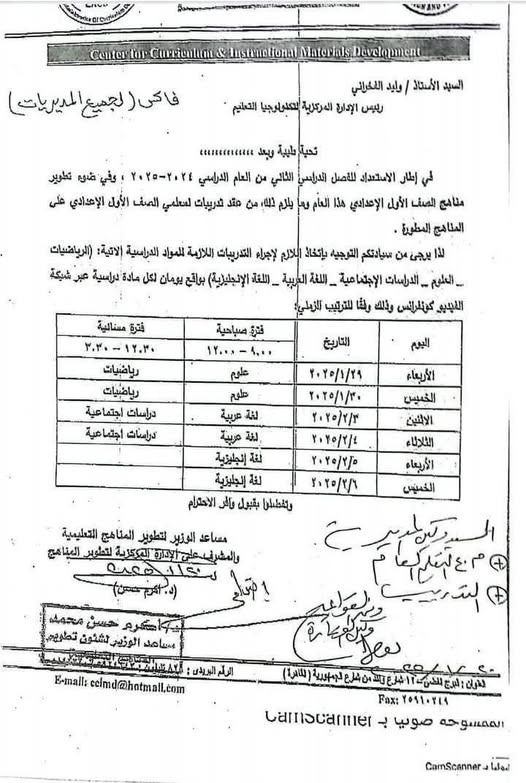 Center for Curriculum & Instructional Materials Development
السيد الأستاذ / وليد الفخراني
فاكس (لجميع المديريات)
رئيس الإدارة المركزية لتكنولوجيا التعليم
تحية طيبة وبعد ،،،،،،،،،،،،،
في إطار الاستعداد للفصل الدراسي الثاني من العام الدراسي ٢٠٢٤-٢٠٢٥ ، وفي ضوء تطوير
مناهج الصف الأول الإعدادي هذا العام وما يلزم ذلك من عقد تدريبات لمعلمي الصف الأول الإعدادي على
المناهج المطورة .
لذا يرجى من سيادتكم التوجيه بإتخاذ اللازم لإجراء التدريبات اللازمة للمواد الدراسية الاتية: (الرياضيات
_ العلوم _ الدراسات الإجتماعية _ اللغة العربية _ اللغة الإنجليزية) بواقع يومان لكل مادة دراسية عبر شبكة
الفيديو كونفرانس وذلك وفقا للترتيب الزمني:
اليوم التاريخ فترة صباحية ٩.٠٠ – ١٢.٠٠ فترة مسائية ١٢.٣٠ – ٣.٣٠
الأربعاء ٢٠٢٥/١/٢٩ علوم رياضيات
الخميس ٢٠٢٥/١/٣٠ علوم رياضيات
الاثنين ٢٠٢٥/٢/٣ لغة عربية دراسات اجتماعية
الثلاثاء ٢٠٢٥/٢/٤ لغة عربية دراسات اجتماعية
الأربعاء ٢٠٢٥/٢/٥ لغة إنجليزية
الخميس ٢٠٢٥/٢/٦ لغة إنجليزية
وتفضلوا بقبول وافر الاحترام
مساعد الوزير لتطوير المناهج التعليمية
والمشرف على الإدارة المركزية لتطوير المناهج
(د. أكرم حسن)
السيد وكيل المديرية
م.ع التعليم العام
التدريب
د/ اكرم حسن محمد
مساعد الوزير لشئون تطوير
المناهج التعليمية
الرقم البريدى:
E-mail: ccimd@hotmail.com
Fax: ٢٥٩١٠٢٤٩
الممسوحة ضوئيا بـ CamScanner
CamScanner